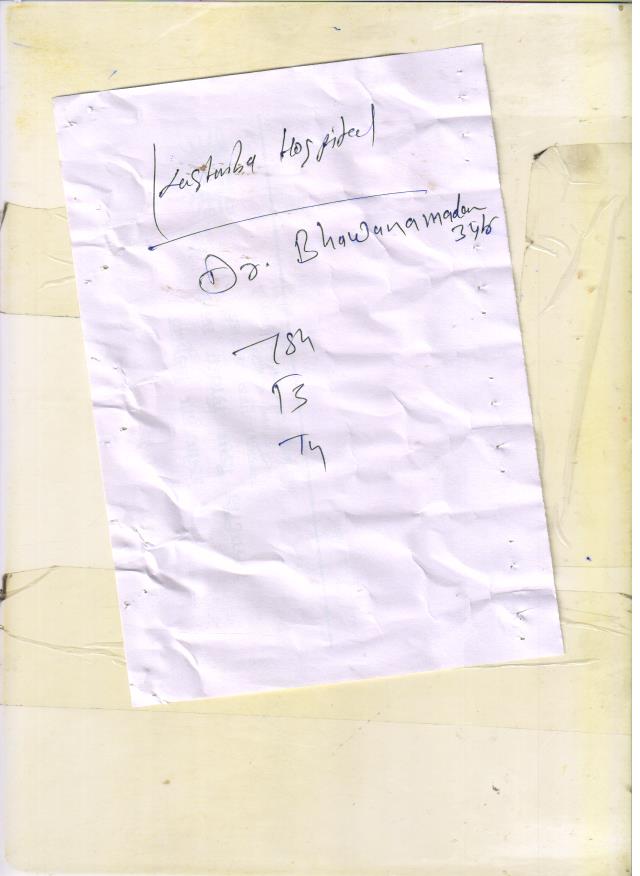 Kasturba Hospital
Dr. Bhawanamadan
34yr
TSH
T3
T4